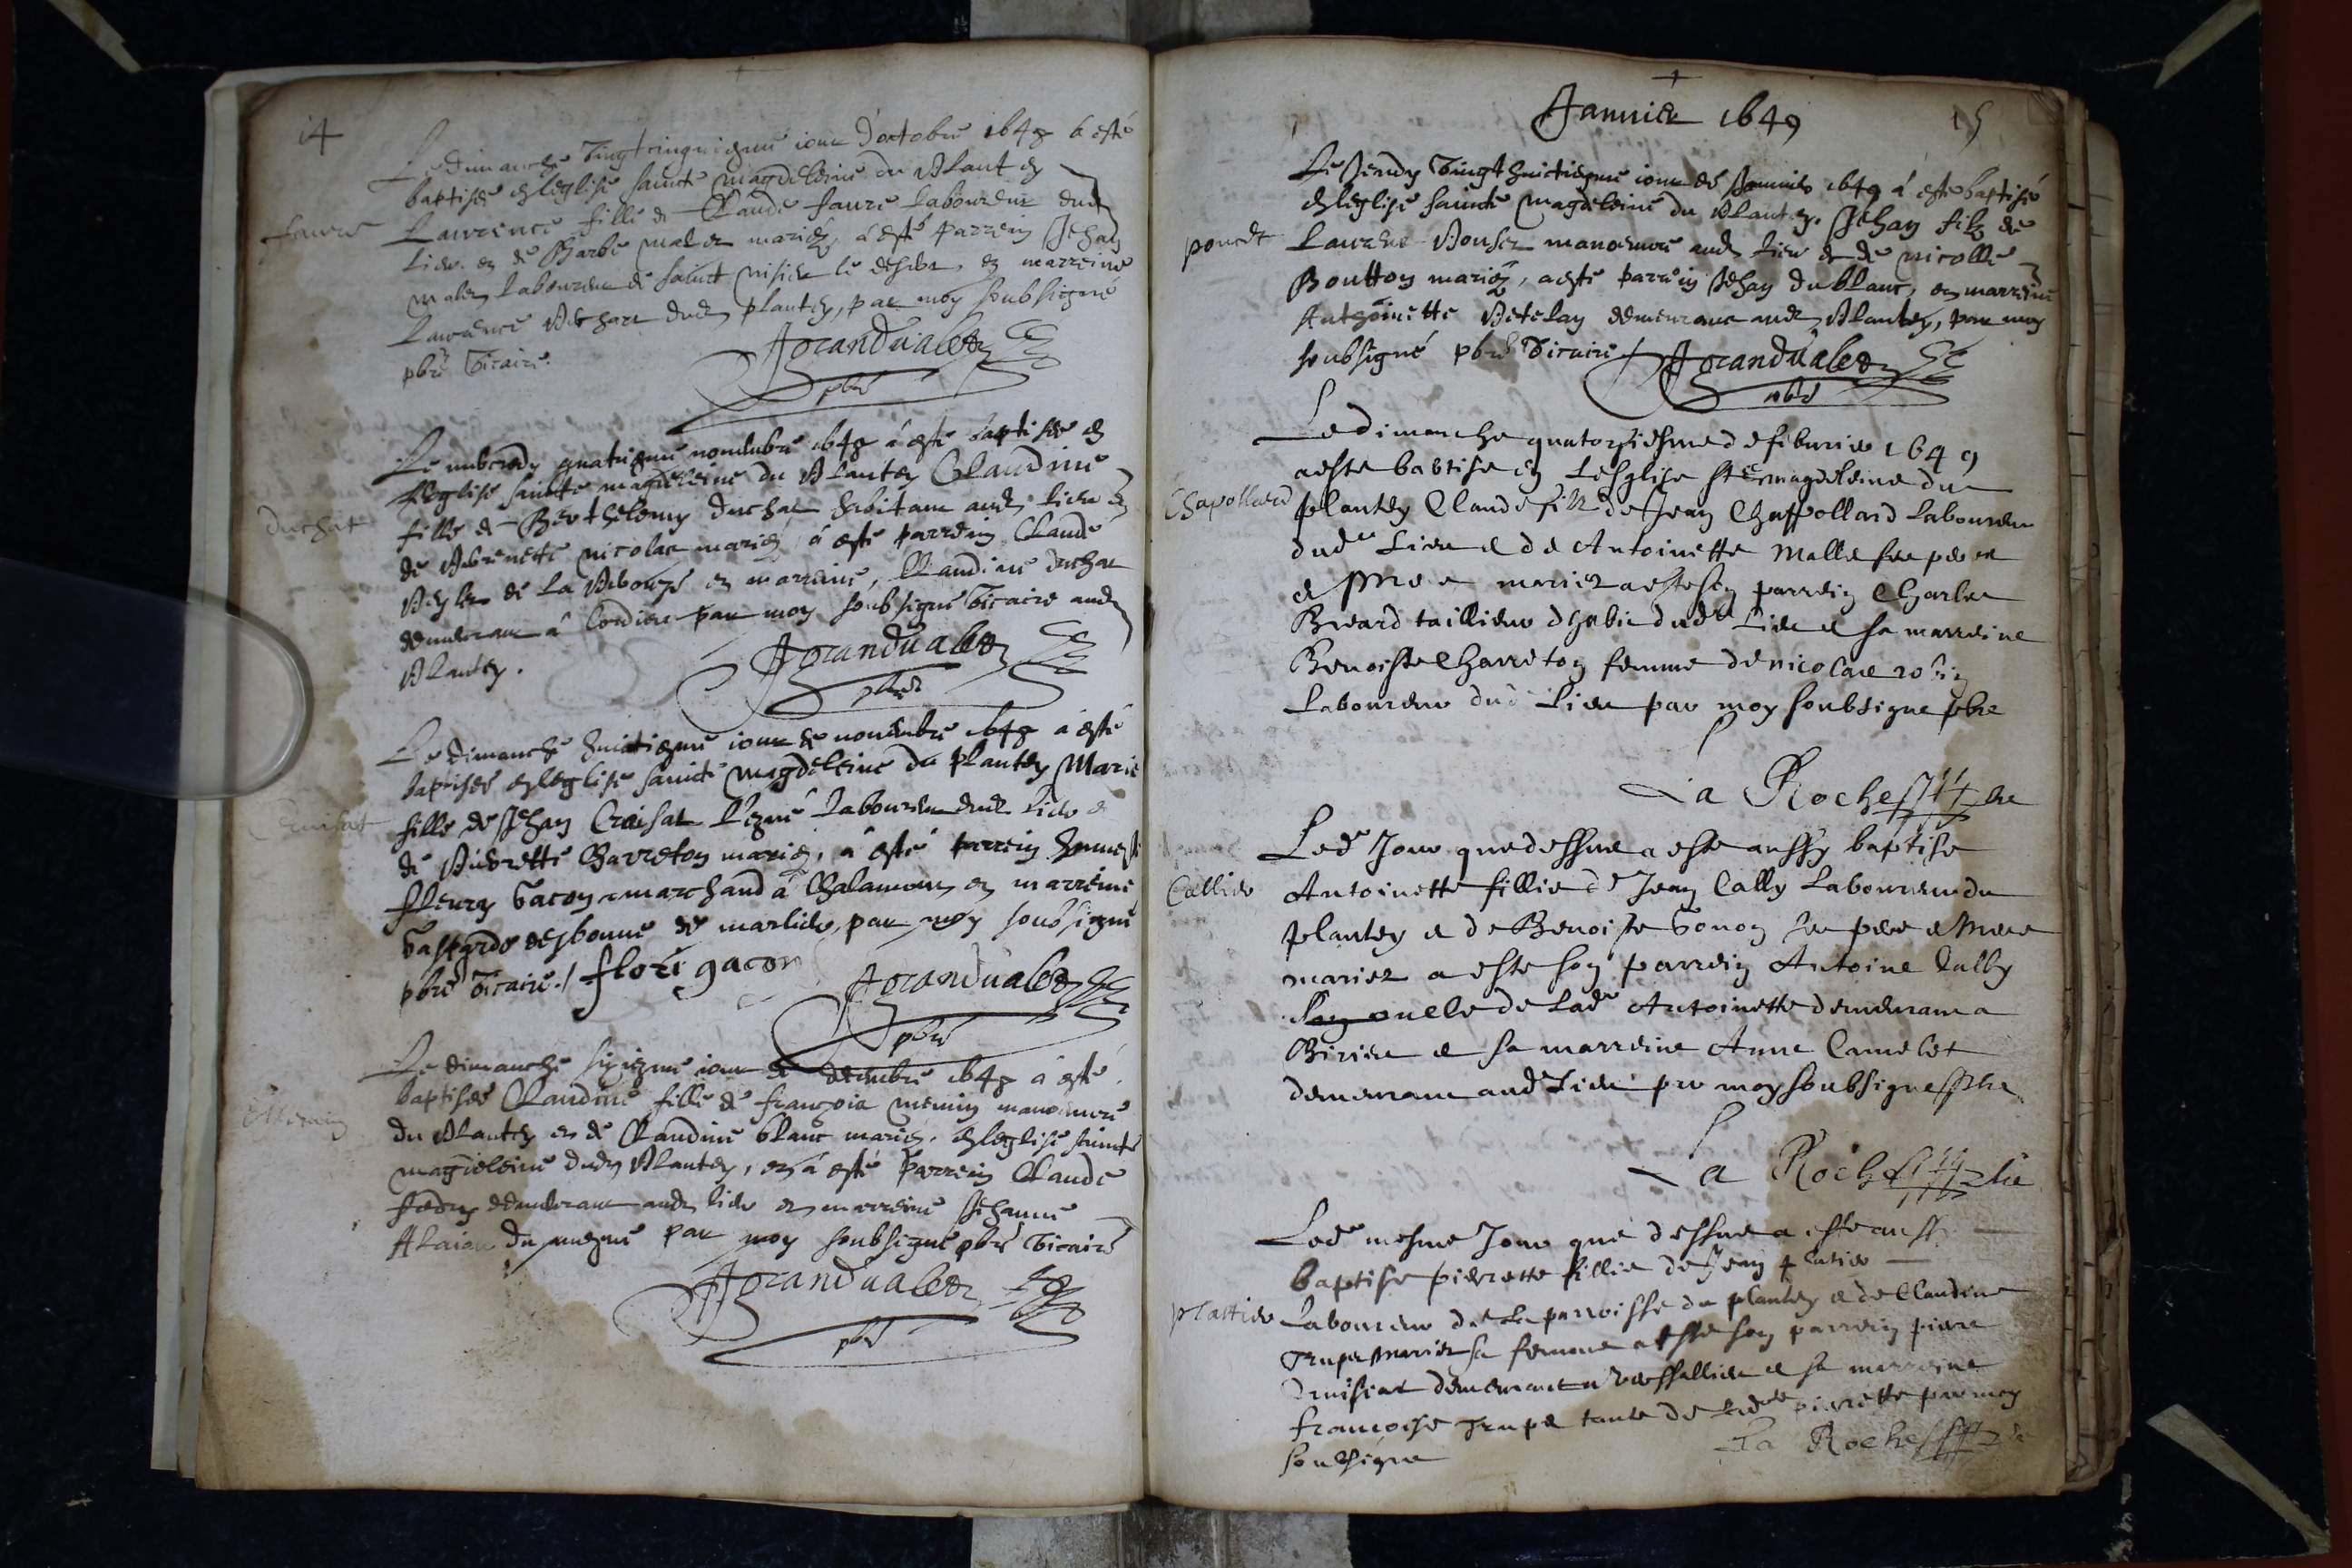 14
Le dimanche vingtcinquiesme iour d'octobre 1648 a esté
baptisée en leglise saincte magdeleine du Plantey
faure
Laurence fille de Claude faure laboureur dud
lieu et de Barbe maler mariez, a esté parrein Jehan
maler laboureur de sainct nisier le desert, et marreine
Laurence dud plantey, par moy soubsigné
pbre vicaire.
Jgranduales
pbre
Le mecredy quatriesme nouembre 1648 a esté baptisée en
leglise saincte magdeleine du Plantey Claudine
duchat
fille de Berthelemy duchat habitant aud lieu et
de Pierrette nicolas mariez a esté parrein Claude
de la et marreine, Claudine duchat
demeurant à Cordieu par moy soubsigné vicaire aud
Plantey.
Jgranduales
pbre
Le dimanche huictiesme iour de nouembre 1648 a esté
baptisée en leglise saincte magdeleine du plantey Marie
Cruisat
fille de Jehan Cruisat laboureur dud lieu et
de Pierrette Barreton mariez, a esté parrein honneste
fleury gacon marchand à Chalamont et marreine
de marlieu, par moy soubsigné
pbre vicaire./ flori gacon
Jgranduales
pbre
Le dimanche sixiesme iour de decembre 1648 a esté
baptisée Claudine fille de françois menin manoeuure
Menin
du Plantey et de Claudine blanc mariez, en leglise saincte
magdeleine dudy Plantey, et a esté parrein Claude
demeurant aud lieu et marreine Jehanne
du mesme par moy soubsigné pbre vicaire
Jgranduales
pbre
Januier 1649
15
Le Jeudy vingt huictiesme iour de Januier 1649 a esté baptisé
en leglise saincte magdeleine du Plantey, Jehan filz de
poncet
Laurens Ponset manoeuure aud lieu et de nicolle
Boutton mariez, a esté parrein Jehan du blanc, et marreine
Anthoinette demeurant aud Plantey, par moy
soubsigné pbre vicaire /
Jgranduales
pbre
Le dimanche quatorsiesme de feburier 1649
a este babtise en Lesglise ste magdeleine du
Chapollard
plantey Claude filz de Jean Chappollard Laboureur
dud Lieu et de Antoinette Malle ses pere
et Mere mariez a este son parrein Charles
Breard taillieur dhabit dud Lieu et sa marreine
Benoiste Charreton femme de nicolas robin
Laboureur dud Lieu par moy soubsigne pbre
La Roche pbre
Led Jour que dessus a este aussy baptise
Callier
Antoinette fillie de Jean Cally Laboureur du
plantey et de Benoiste Gonon ses pere et Mere
mariez a este son parrein Antoine Cally
Son oncle de Lad Antoinette demeurant a
Birieu et sa marreine Anne Camelet
demeurant aud Lieu par moy soubsigne pbre
La Roche pbre
Led mesme Jour que dessus a este aussy
baptise pierrette fillie de Jean platier
plattier
Laboureur de La parroisse du plantey et de Claudine
Trupe Mariez sa femme a este son parrein pierre
Cruisiat demeurant a versallieu et sa marreine
francoise Trupe tante de Lad pierrette par moy
soubsigne
La Roche pbre